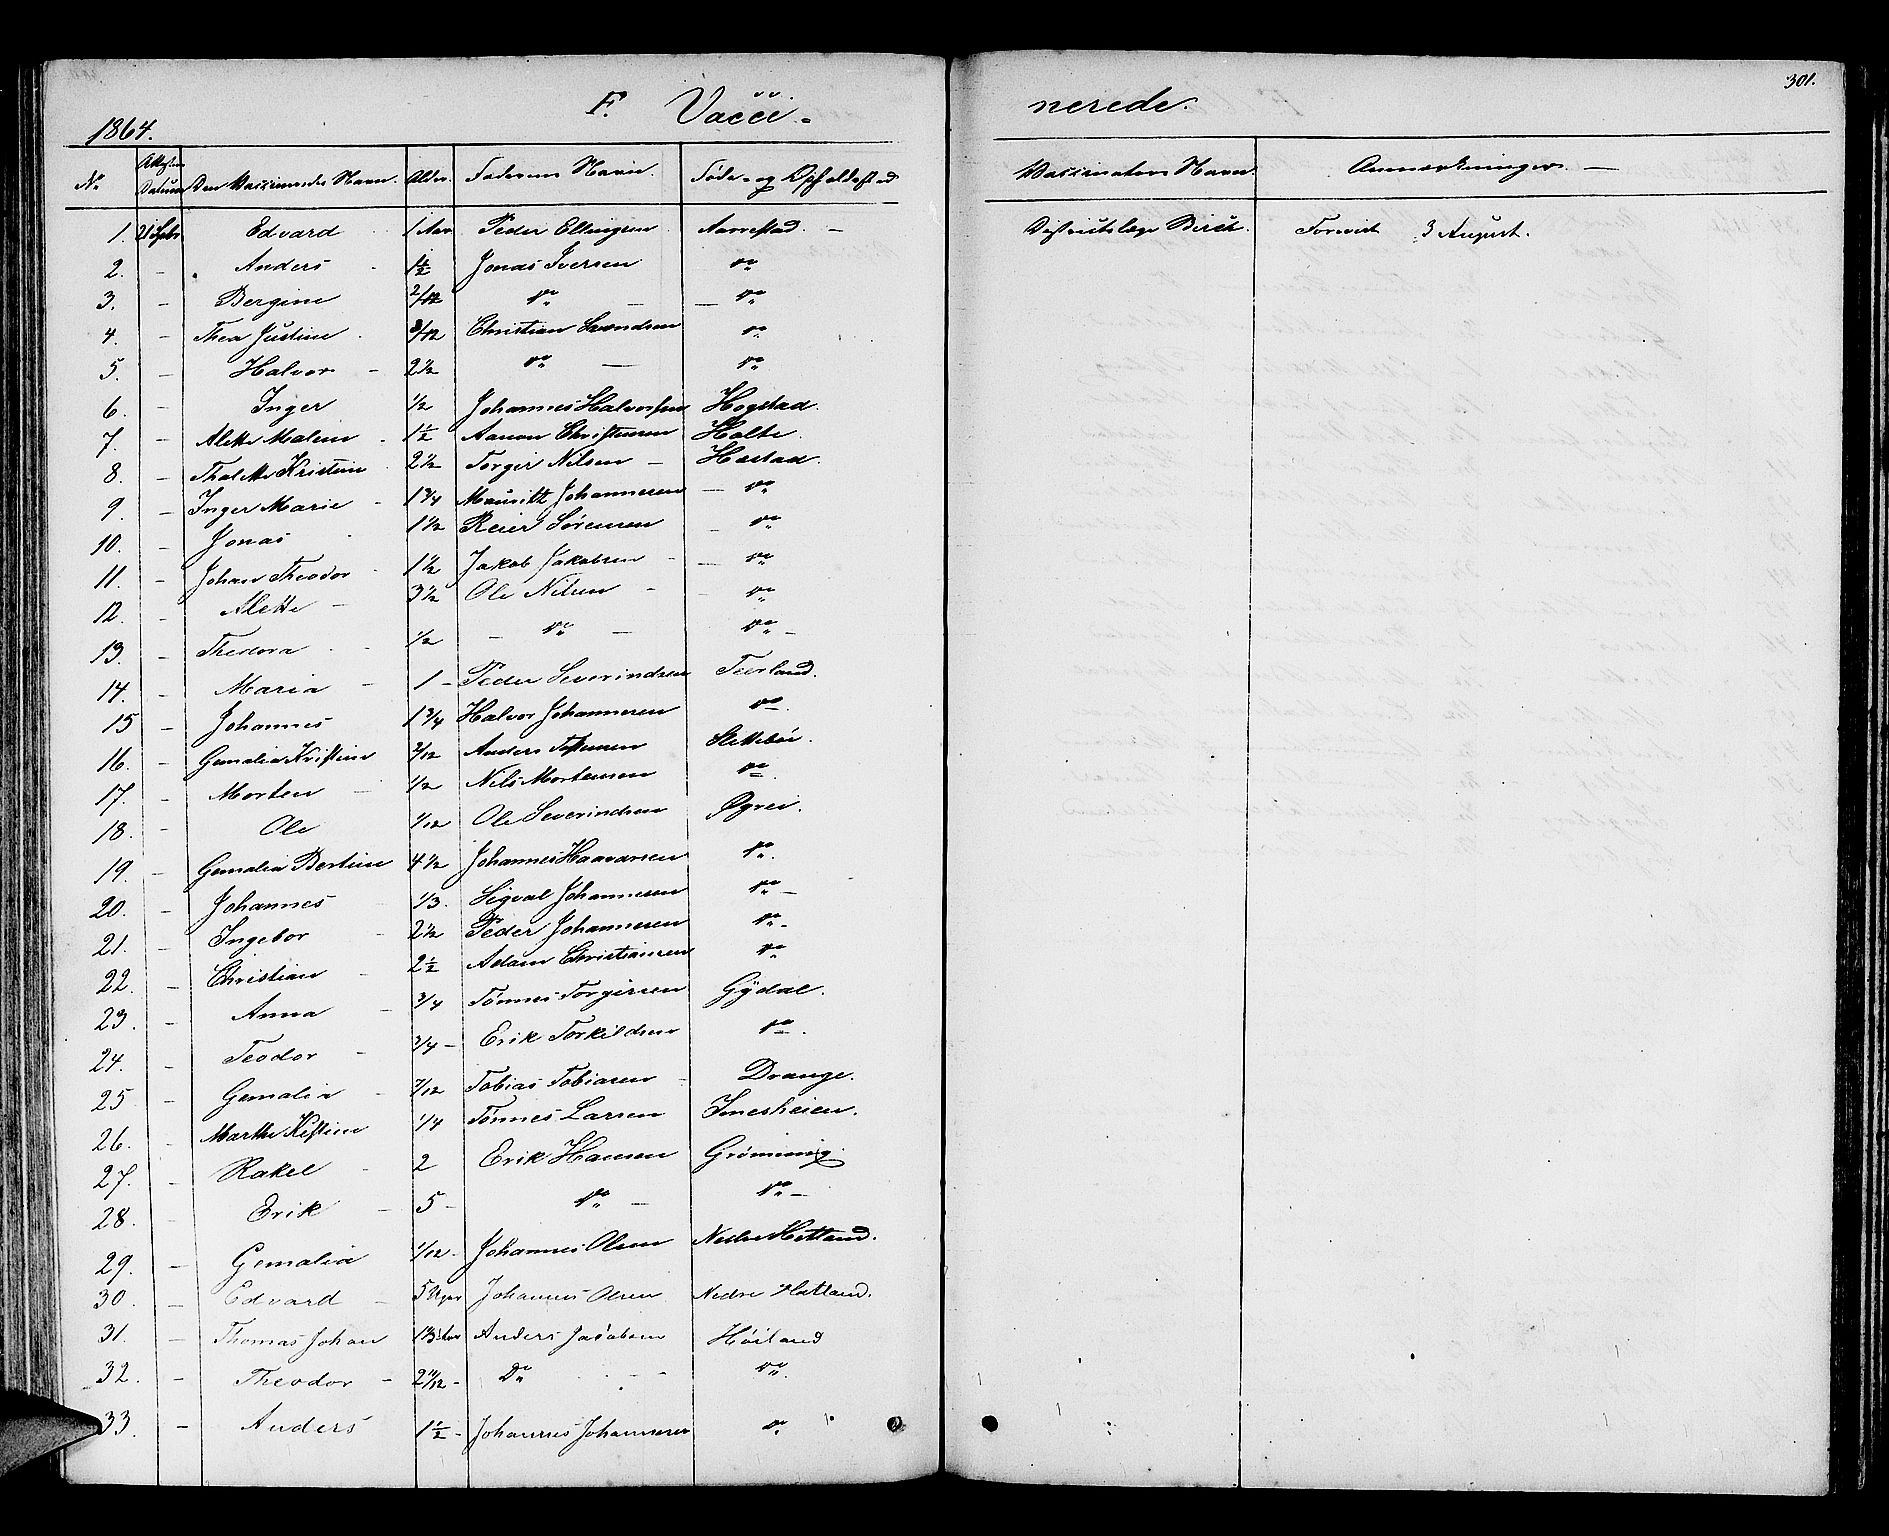 301.
F. Vacci-nerede.
1864.
No Attestens Datum Den Vaccineredes Navn. Alder. Faderens Navn. Føde- og Opholdssted Vaccinators Navn Anmærkninger.
1. 21 Edvard 1 Aar Peder Ellingsen Aarrestad. Distriktslæge Forevist 3 August.
2. - Anders 1½ Jonas Iversen Do
3. - Bergine 2/12 Do - Do
4. - Thea Justine 8/12 Christian Svendsen Do
5. - Halvor 2½ Do Do
6. - Inger ½ Johannes Halvorsen Hogstad.
7. - Alette Malene 1½ Aanon Christensen Holte.
8. - Thalette Kristine 2½ Torger Nilsen Hæstad.
9. - Inger Marie 1¾ Mauritz Johannesen Do
10. - Jonas 1½ Reier Sørensen Do
11. - Johan Theodor 1½ Jakob Jakobsen Do
12. - Alette 3½ Ole Nilsen Do
13. - Theodora ½ Do Do
14. - Maria 1 - Peder Severindsen Teerland.
15 - Johannes 1¾ Halvor Johannesen Do
16. - Gemalia Kristine 2/12 Anders Slettebøe.
17. - Morten ½ Nils Mortensen Do
18. - Ole 1/12 Ole Severindsen Øgrei.
19. - Gemalia Bertine 4½ Johannes Haavarsen Do
20. - Johannes 1/3. Sigval Johannesen Do
21. - Ingebor 2½ Peder Johannesen Do
22. - Christian 2½ Adam Christiansen Do
23. - Anna 3/4 Tønnes Torgersen Gÿdal.
24. - Teodor 3/4 Erik Torkildsen Do
25 - Gemalia 7/12 Tobias Tobiasen Drange.
26. - Marthe Kistine 1/4 Tønnes Larsen Imesheien.
27. - Rakel 2 Erik Hansen Grøming.
28. - Erik 5 - Do Do
29. - Gemalia 1/12 - Johannes Olsen Nedre Hetland.
30. - Edvard 5 Uger Johannes Olsen Nedre Hetland.
31. - Thomas Johan Anders Jacobsen Høiland
32. - Theodor 2 11/12 - Do Do
33. - Anders 1½ - Johannes Johannesen Do